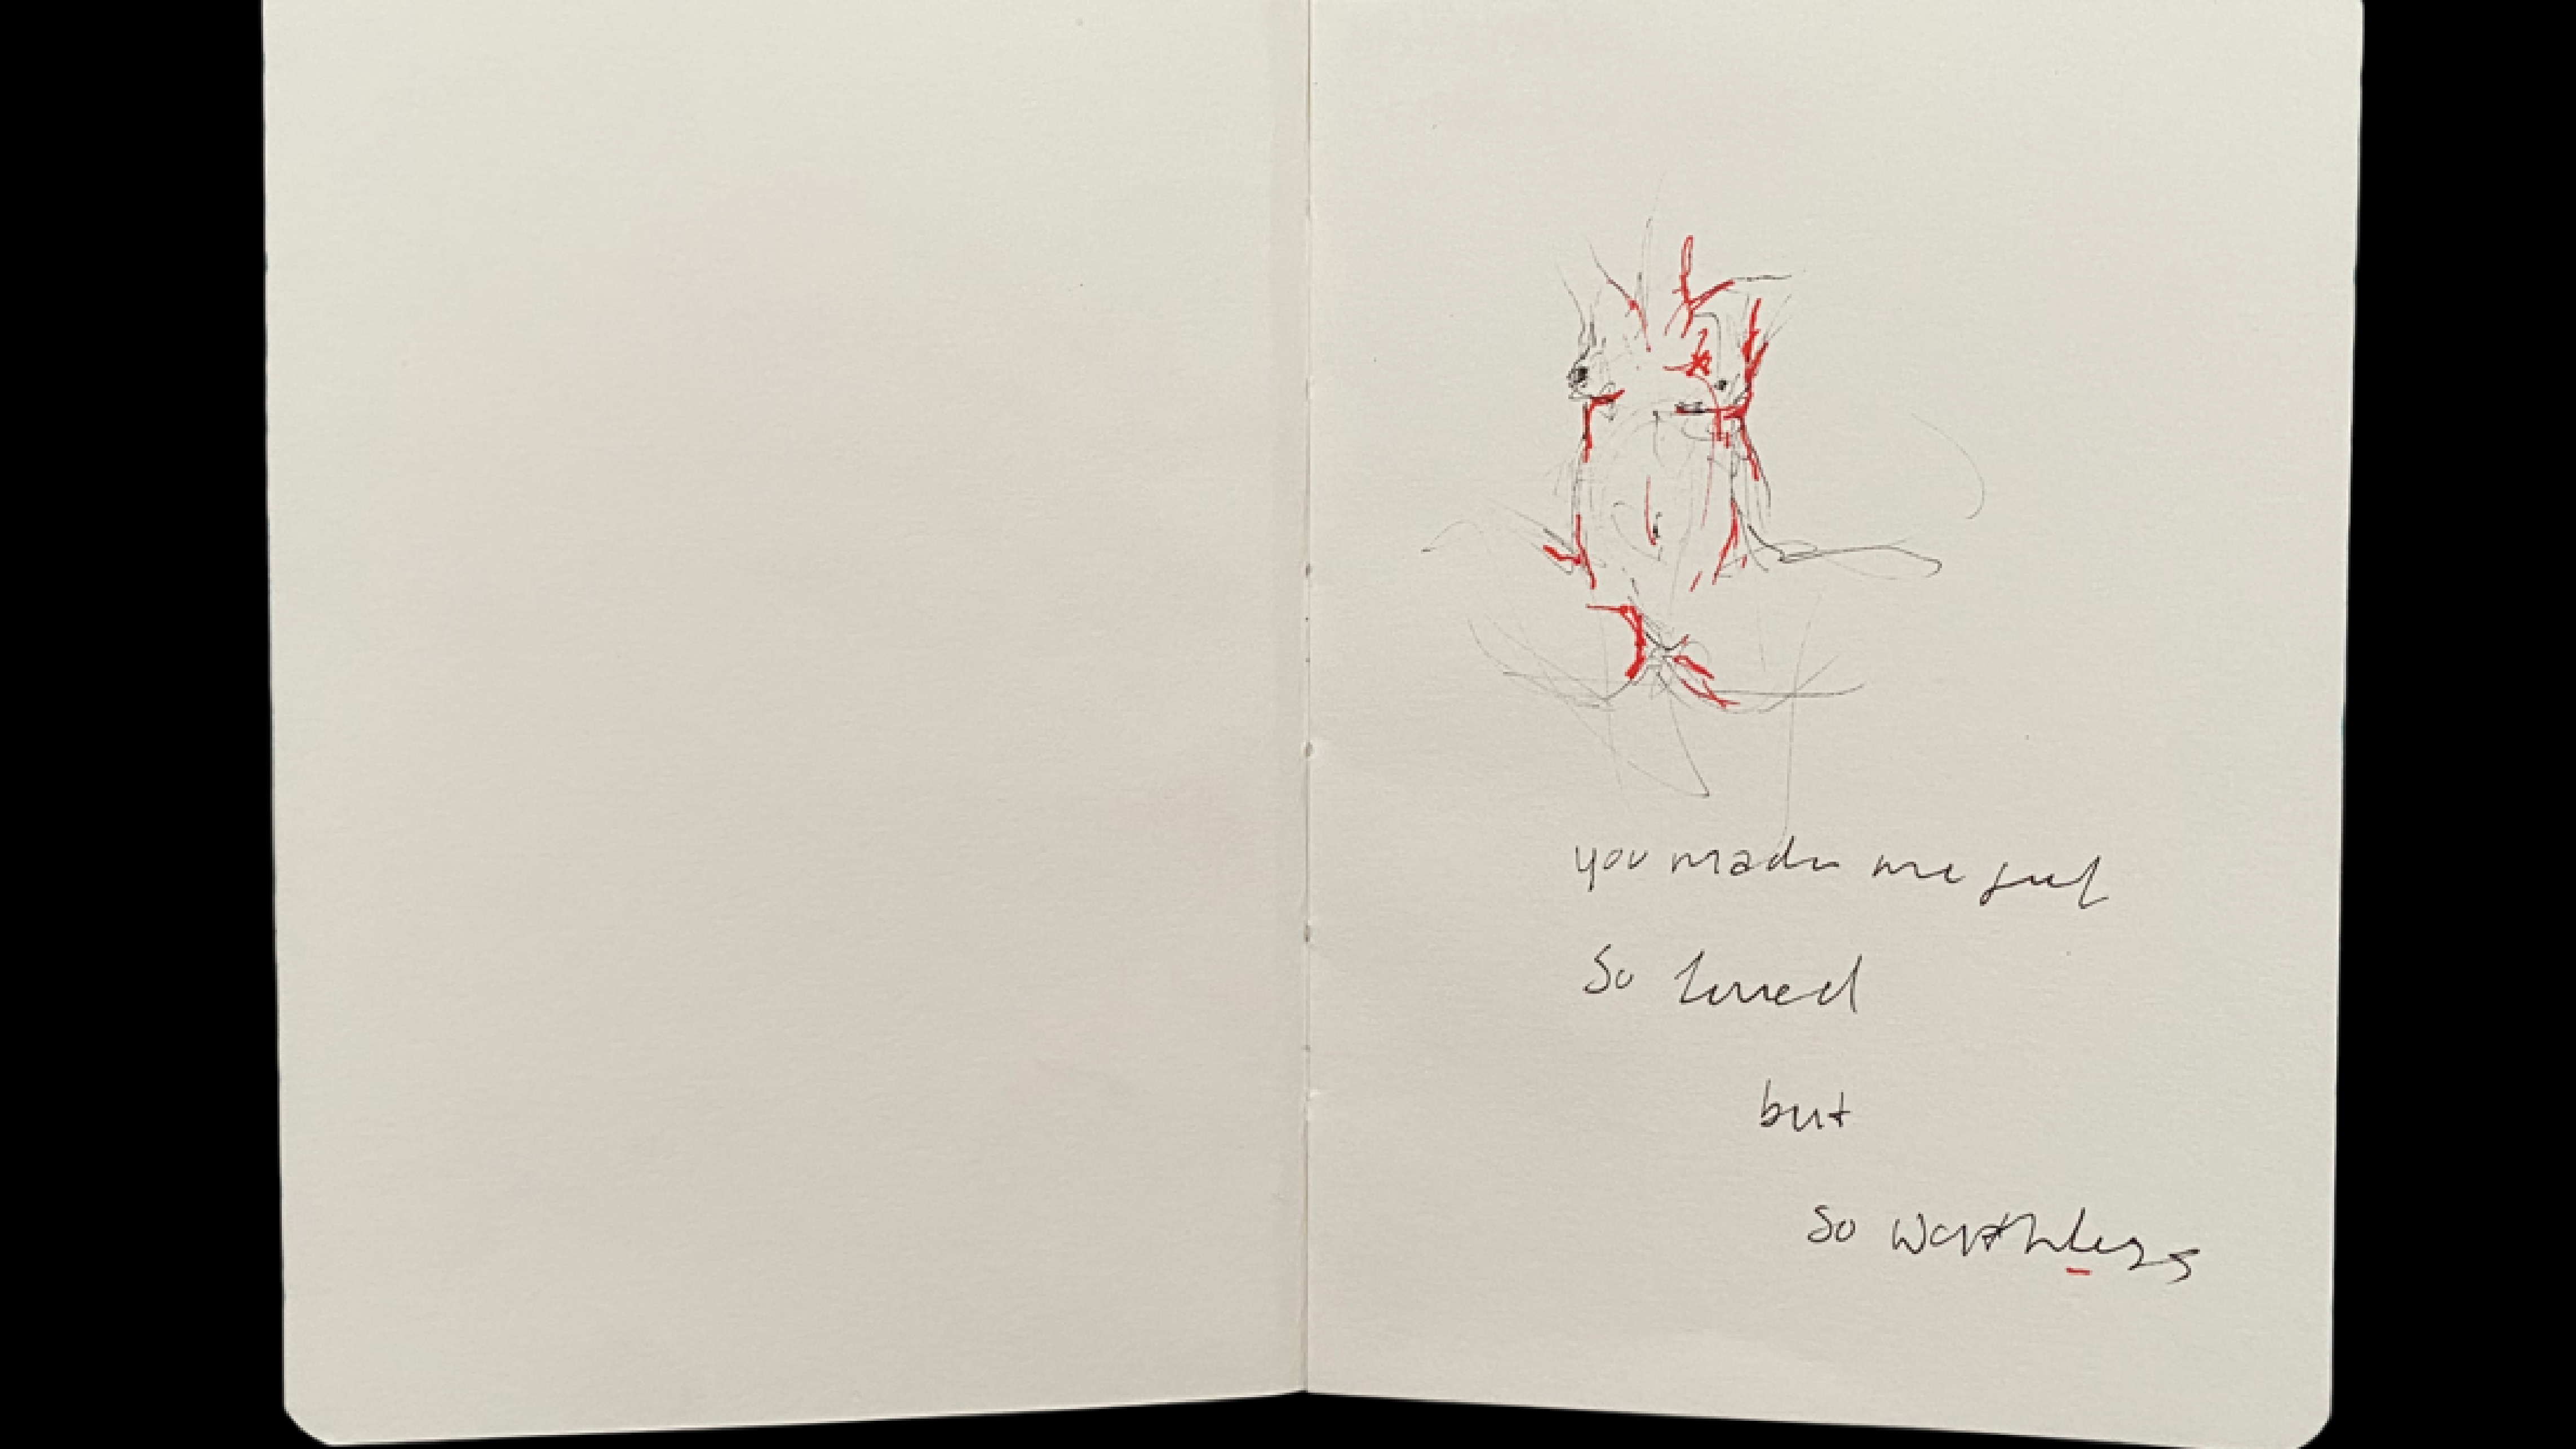 you made me feel
so loved
but
so worthless